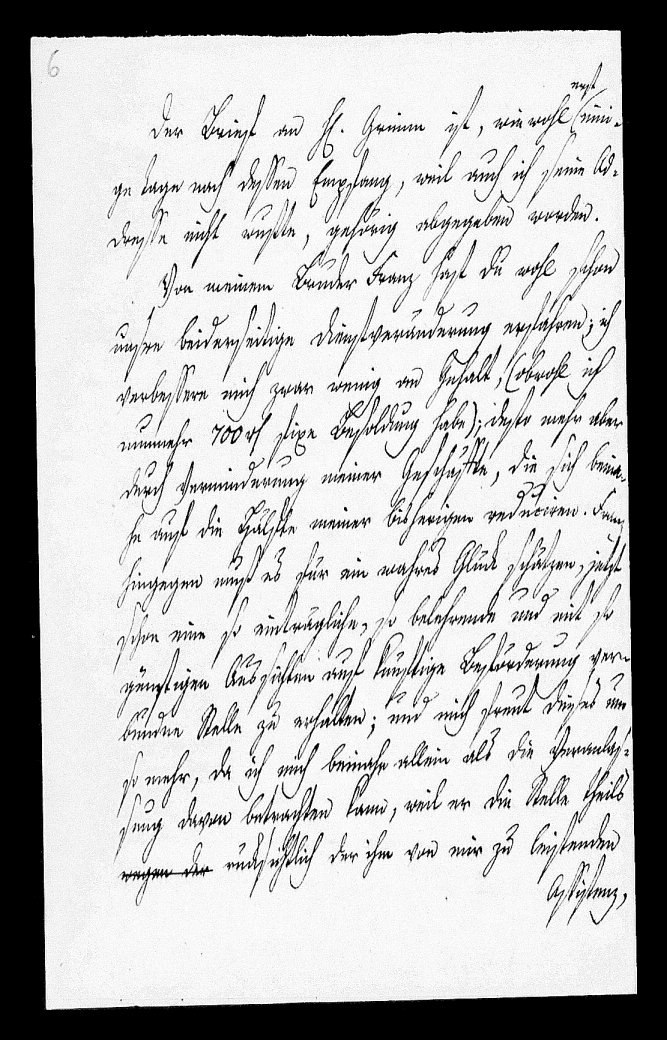 6
erst
Der Brief an H. Grimm ist, wiewohl eini-
ge Tage nach dessen Empfang, weil auch ich seine Ad-
dresse nicht wußte, gehörig abgegeben worden.
Von meinem Bruder Franz hast du wohl schon
unsere beiderseitige Dienstveränderung erfahren; ich
verbessere mich zwar wenig an Gehalt, (obwohl ich
nunmehr 700 rf fixe Besoldung habe); desto mehr aber
durch Verminderung meiner Geschäfte, die sich beina-
he auf die Hälfte meiner bisherigen reduciren. Franz
hingegen muß es für ein wahres Glück schätzen, jetzt
schon eine so einträgliche, so belehrende und mit so
günstigen Aussichten auf künftige Beförderung ver-
bundne Stelle zu erhalten; und mich freut dieses um
so mehr, da ich mich beinahe allein als die Veranlas-
sung davon betrachten kann, weil er die Stelle theils
wegen der rücksichtlich der ihm von mir zu leistenden
Assistenz,